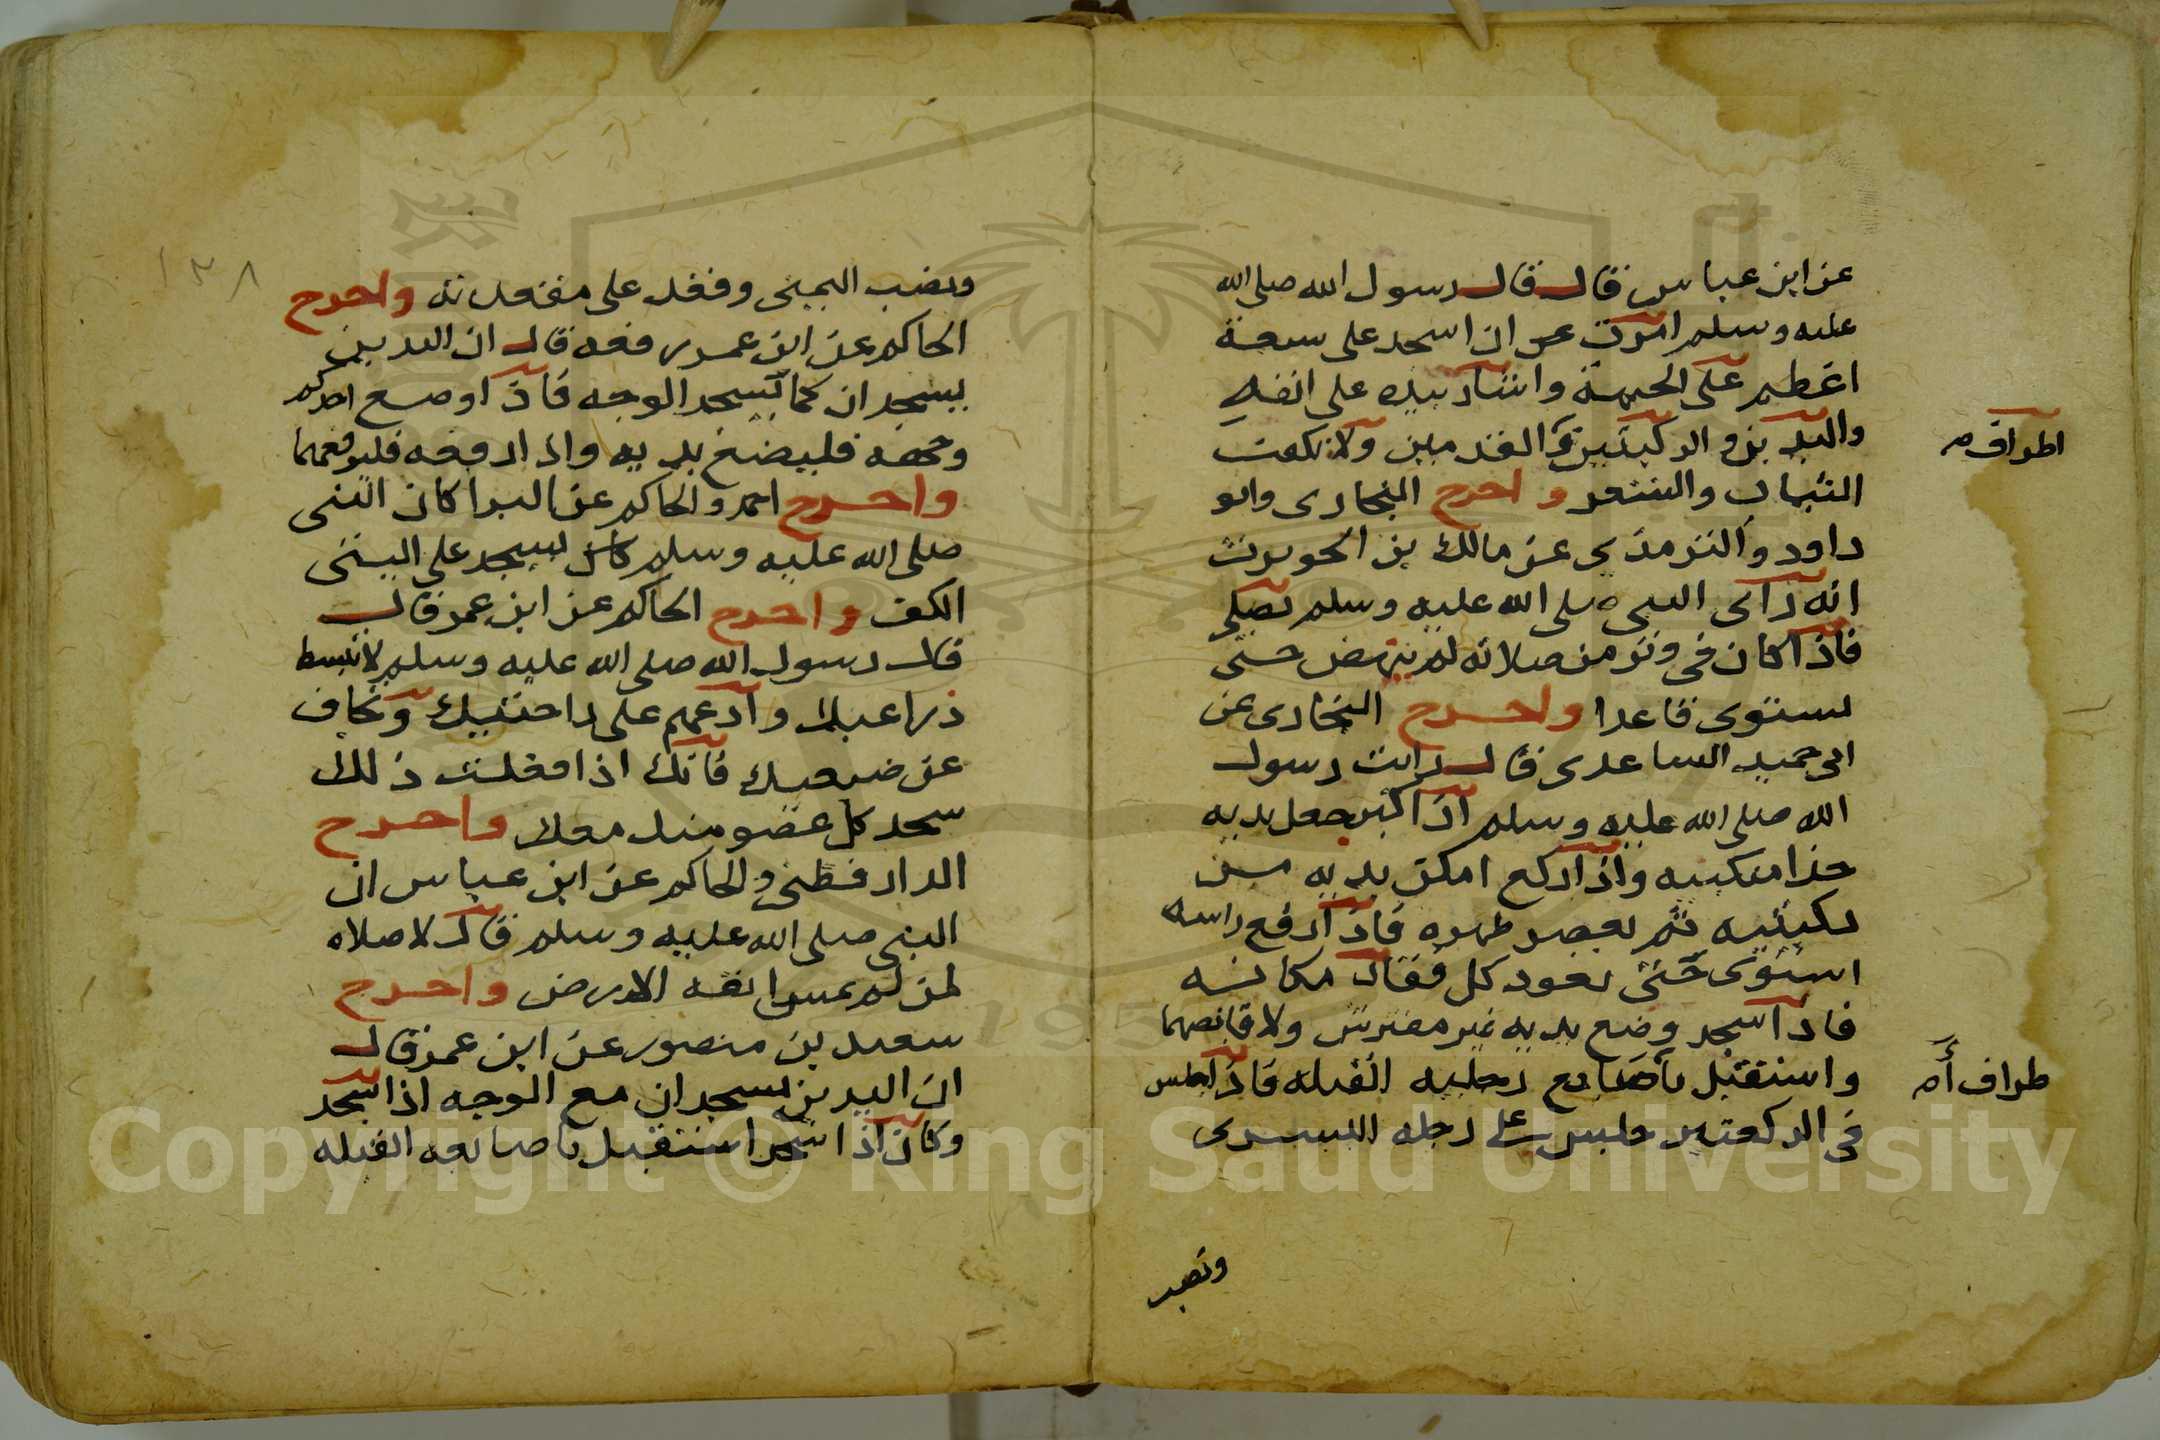 عن ابن عباس قال قال رسول الله صلى الله
عليه وسلم امرت ان اسجد على سبعة
اعظم على الجبهة واشار بيده على انفه
واليدين والركبتين والقدمين ولا نكفت
الثياب والشعر واخرج البخارى وابو
داود والترمذى عن مالك بن الحويرث
انه راى النبى صلى الله عليه وسلم يصلى
فاذا كان فى وتر من صلاته لم ينهض حتى
يستوى قاعدا واخرج البخارى عن
ابى حميد الساعدى قال رايت رسول
الله صلى الله عليه وسلم اذا كبر جعل يديه
حذا منكبيه واذا ركع امكن يديه من
ركبتيه ثم هصر ظهره فاذا رفع راسه
استوى حتى يعود كل فقار مكانه
فاذا سجد وضع يديه غير مفترش ولا قابضهما
واستقبل باصابع رجليه القبلة فاذا جلس
فى الركعتين جلس على رجله اليسرى
اطراف
طراف
ونصب
١٣٨
ونصب اليمنى وقعد على مقعدته واخرج
الحاكم عن ابن عمر رفعه قال ان اليدين
يسجدان كما يسجد الوجه فاذا وضع احدكم
وجهه فليضع يديه واذا رفعه فليرفعهما
واخرج احمد والحاكم عن البرا كان النبى
صلى الله عليه وسلم يسجد على اليتى
الكف واخرج الحاكم عن ابن عمر قال
قال رسول الله صلى الله عليه وسلم لا تبسط
ذراعيك وادعم على راحتيك وتجاف
عن ضبعيك فانك اذا فعلت ذلك
سجد كل عضو منك معك واخرج
الدارقطنى والحاكم عن ابن عباس ان
النبى صلى الله عليه وسلم قال لا صلاه
لمن لم يمس انفه الارض واخرج
سعيد بن منصور عن ابن عمر قال
ان اليدين يسجدان مع الوجه اذا سجد
وكان اذا سجد استقبل باصابعه القبله
Copyright © King Saud University